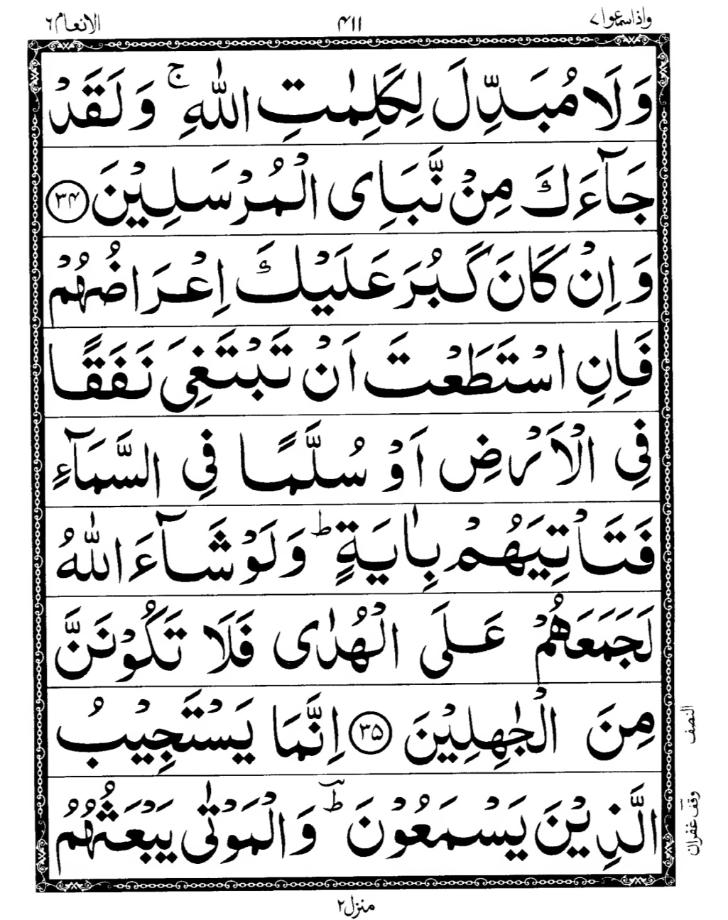 واذاسمعوا ٧ ٤١١ الانعام ٦
وَلَا مُبَدِّلَ لِكَلِمٰتِ اللّٰهِ ۚ وَلَقَدْ
جَآءَكَ مِنْ نَّبَاِى الْمُرْسَلِيْنَ ﴿٣٤﴾
وَاِنْ كَانَ كَبُرَ عَلَيْكَ اِعْرَاضُهُمْ
فَاِنِ اسْتَطَعْتَ اَنْ تَبْتَغِىَ نَفَقًا
فِى الْاَرْضِ اَوْ سُلَّمًا فِى السَّمَآءِ
فَتَاْتِيَهُمْ بِاٰيَةٍ ؕ وَلَوْ شَآءَ اللّٰهُ
لَجَمَعَهُمْ عَلَى الْهُدٰى فَلَا تَكُوْنَنَّ
مِنَ الْجٰهِلِيْنَ ﴿٣٥﴾ اِنَّمَا يَسْتَجِيْبُ
النصف
الَّذِيْنَ يَسْمَعُوْنَ ؕ وَالْمَوْتٰى يَبْعَثُهُمُ
وقف غفران
منزل ٢